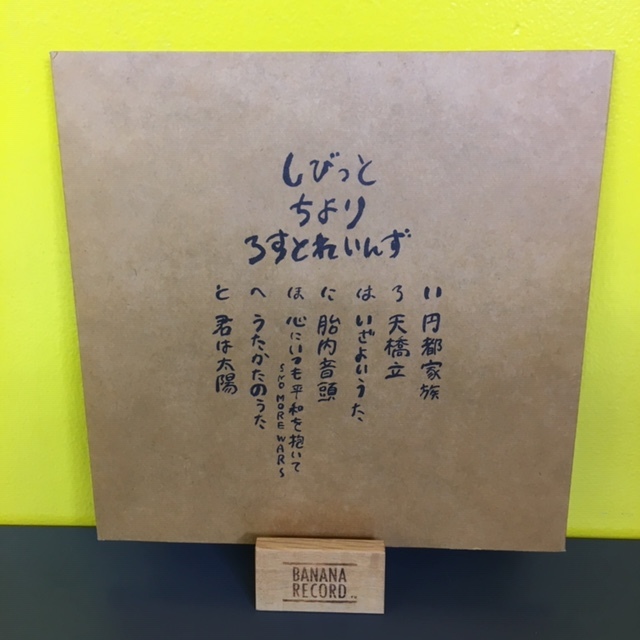 しびっと
ちより
ろすとれいんず
い 円都家族
ろ 天橋立
は いざよいうた
に 胎内音頭
ほ 心にいつも平和を抱いて
SNO MORE WARS
へ うたかたのうた
と 君は太陽
BANANA
RECORD